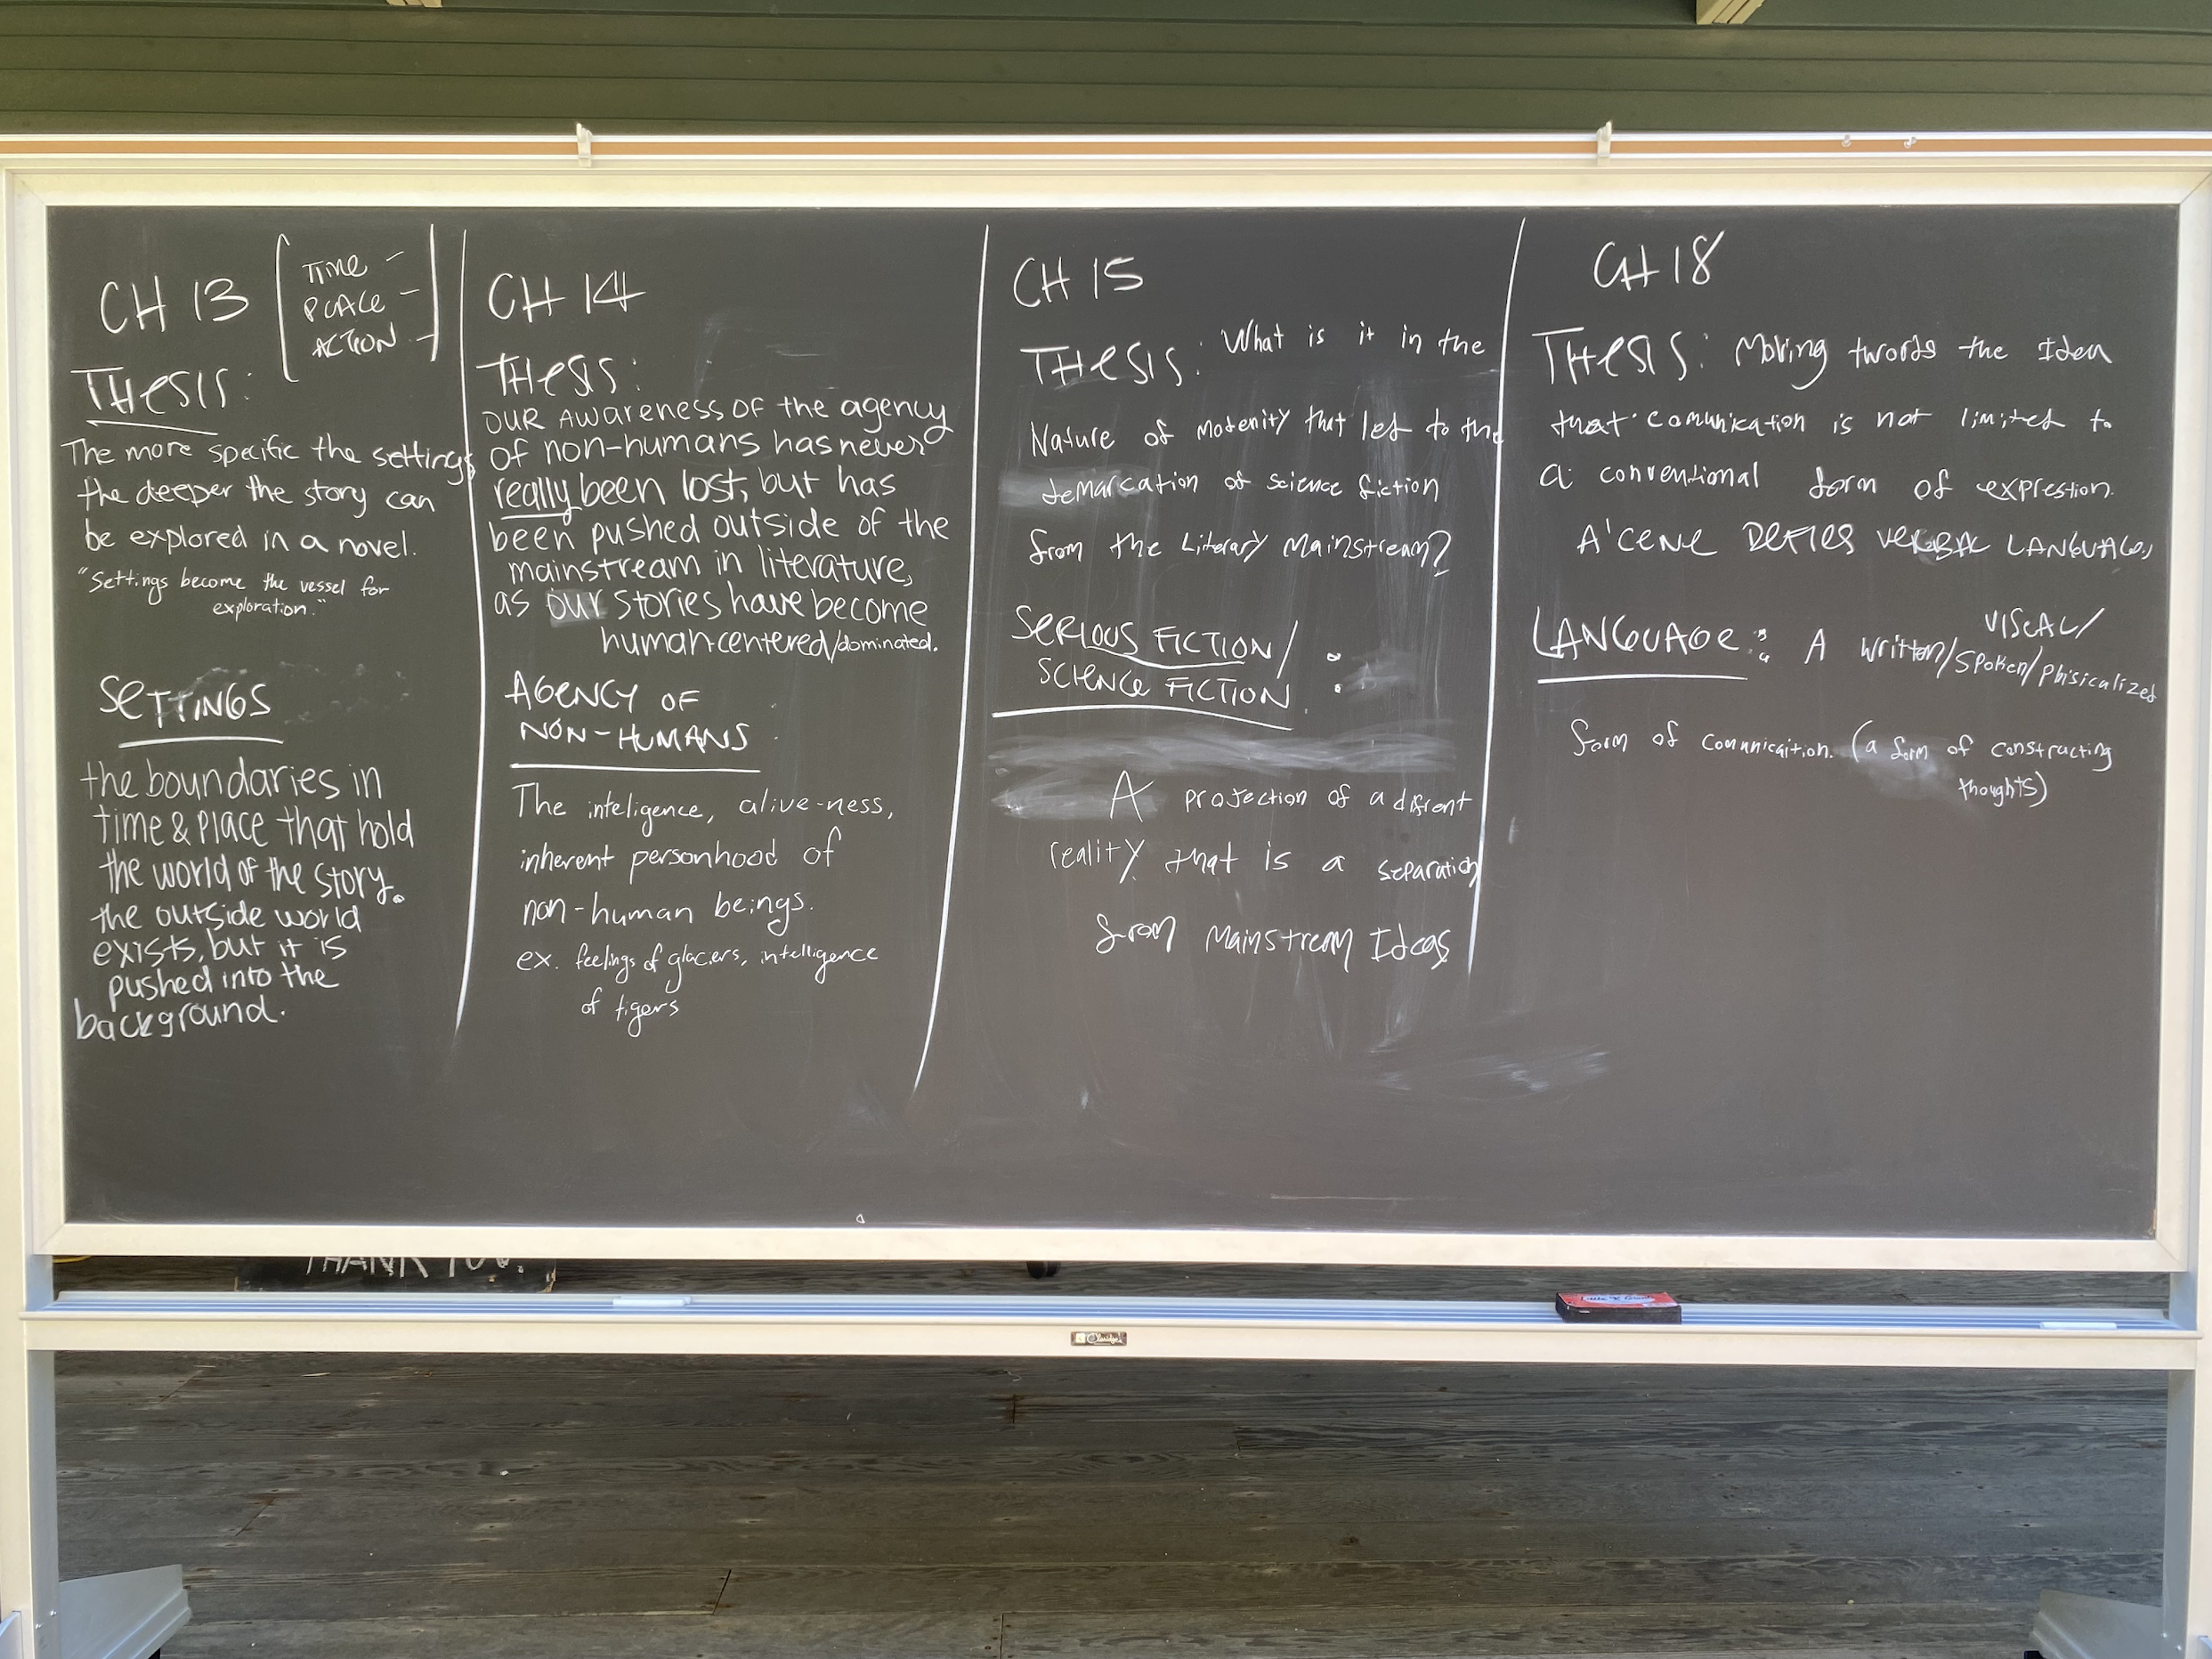 CH 13
TIME -
PLACE -
ACTION -
THESIS:
The more specific the settings
the deeper the story can
be explored in a novel.
"Settings become the vessel for
exploration."
SETTINGS
the boundaries in
time & place that hold
the world of the story.
the outside world
exists, but it is
pushed into the
background.
CH 14
THESIS:
OUR AWARENESS OF the agency
of non-humans has never
really been lost, but has
been pushed outside of the
mainstream in literature,
as our stories have become
human-centered/dominated.
AGENCY OF
NON-HUMANS
The inteligence, alive-ness,
inherent personhood of
non-human beings.
ex. feelings of glaciers, intelligence
of tigers
CH 15
THESIS: What is it in the
Nature of motenity that let to the
demarcation of science fiction
from the Literary Mainstream?
SERIOUS FICTION/
SCIENCE FICTION :
A projection of a difrent
reality that is a separation
from Mainstream Ideas
CH 18
THESIS: Moving twords the Idea
that comunication is not limited to
a conventional form of expresstion.
A'CENE DEFIES VERBAL LANGUAGE,
LANGUAGE: A written/spoken/phisicalized
VISCAL/
form of comunicaition. (a form of constructing
thoughts)
THANK YOU.